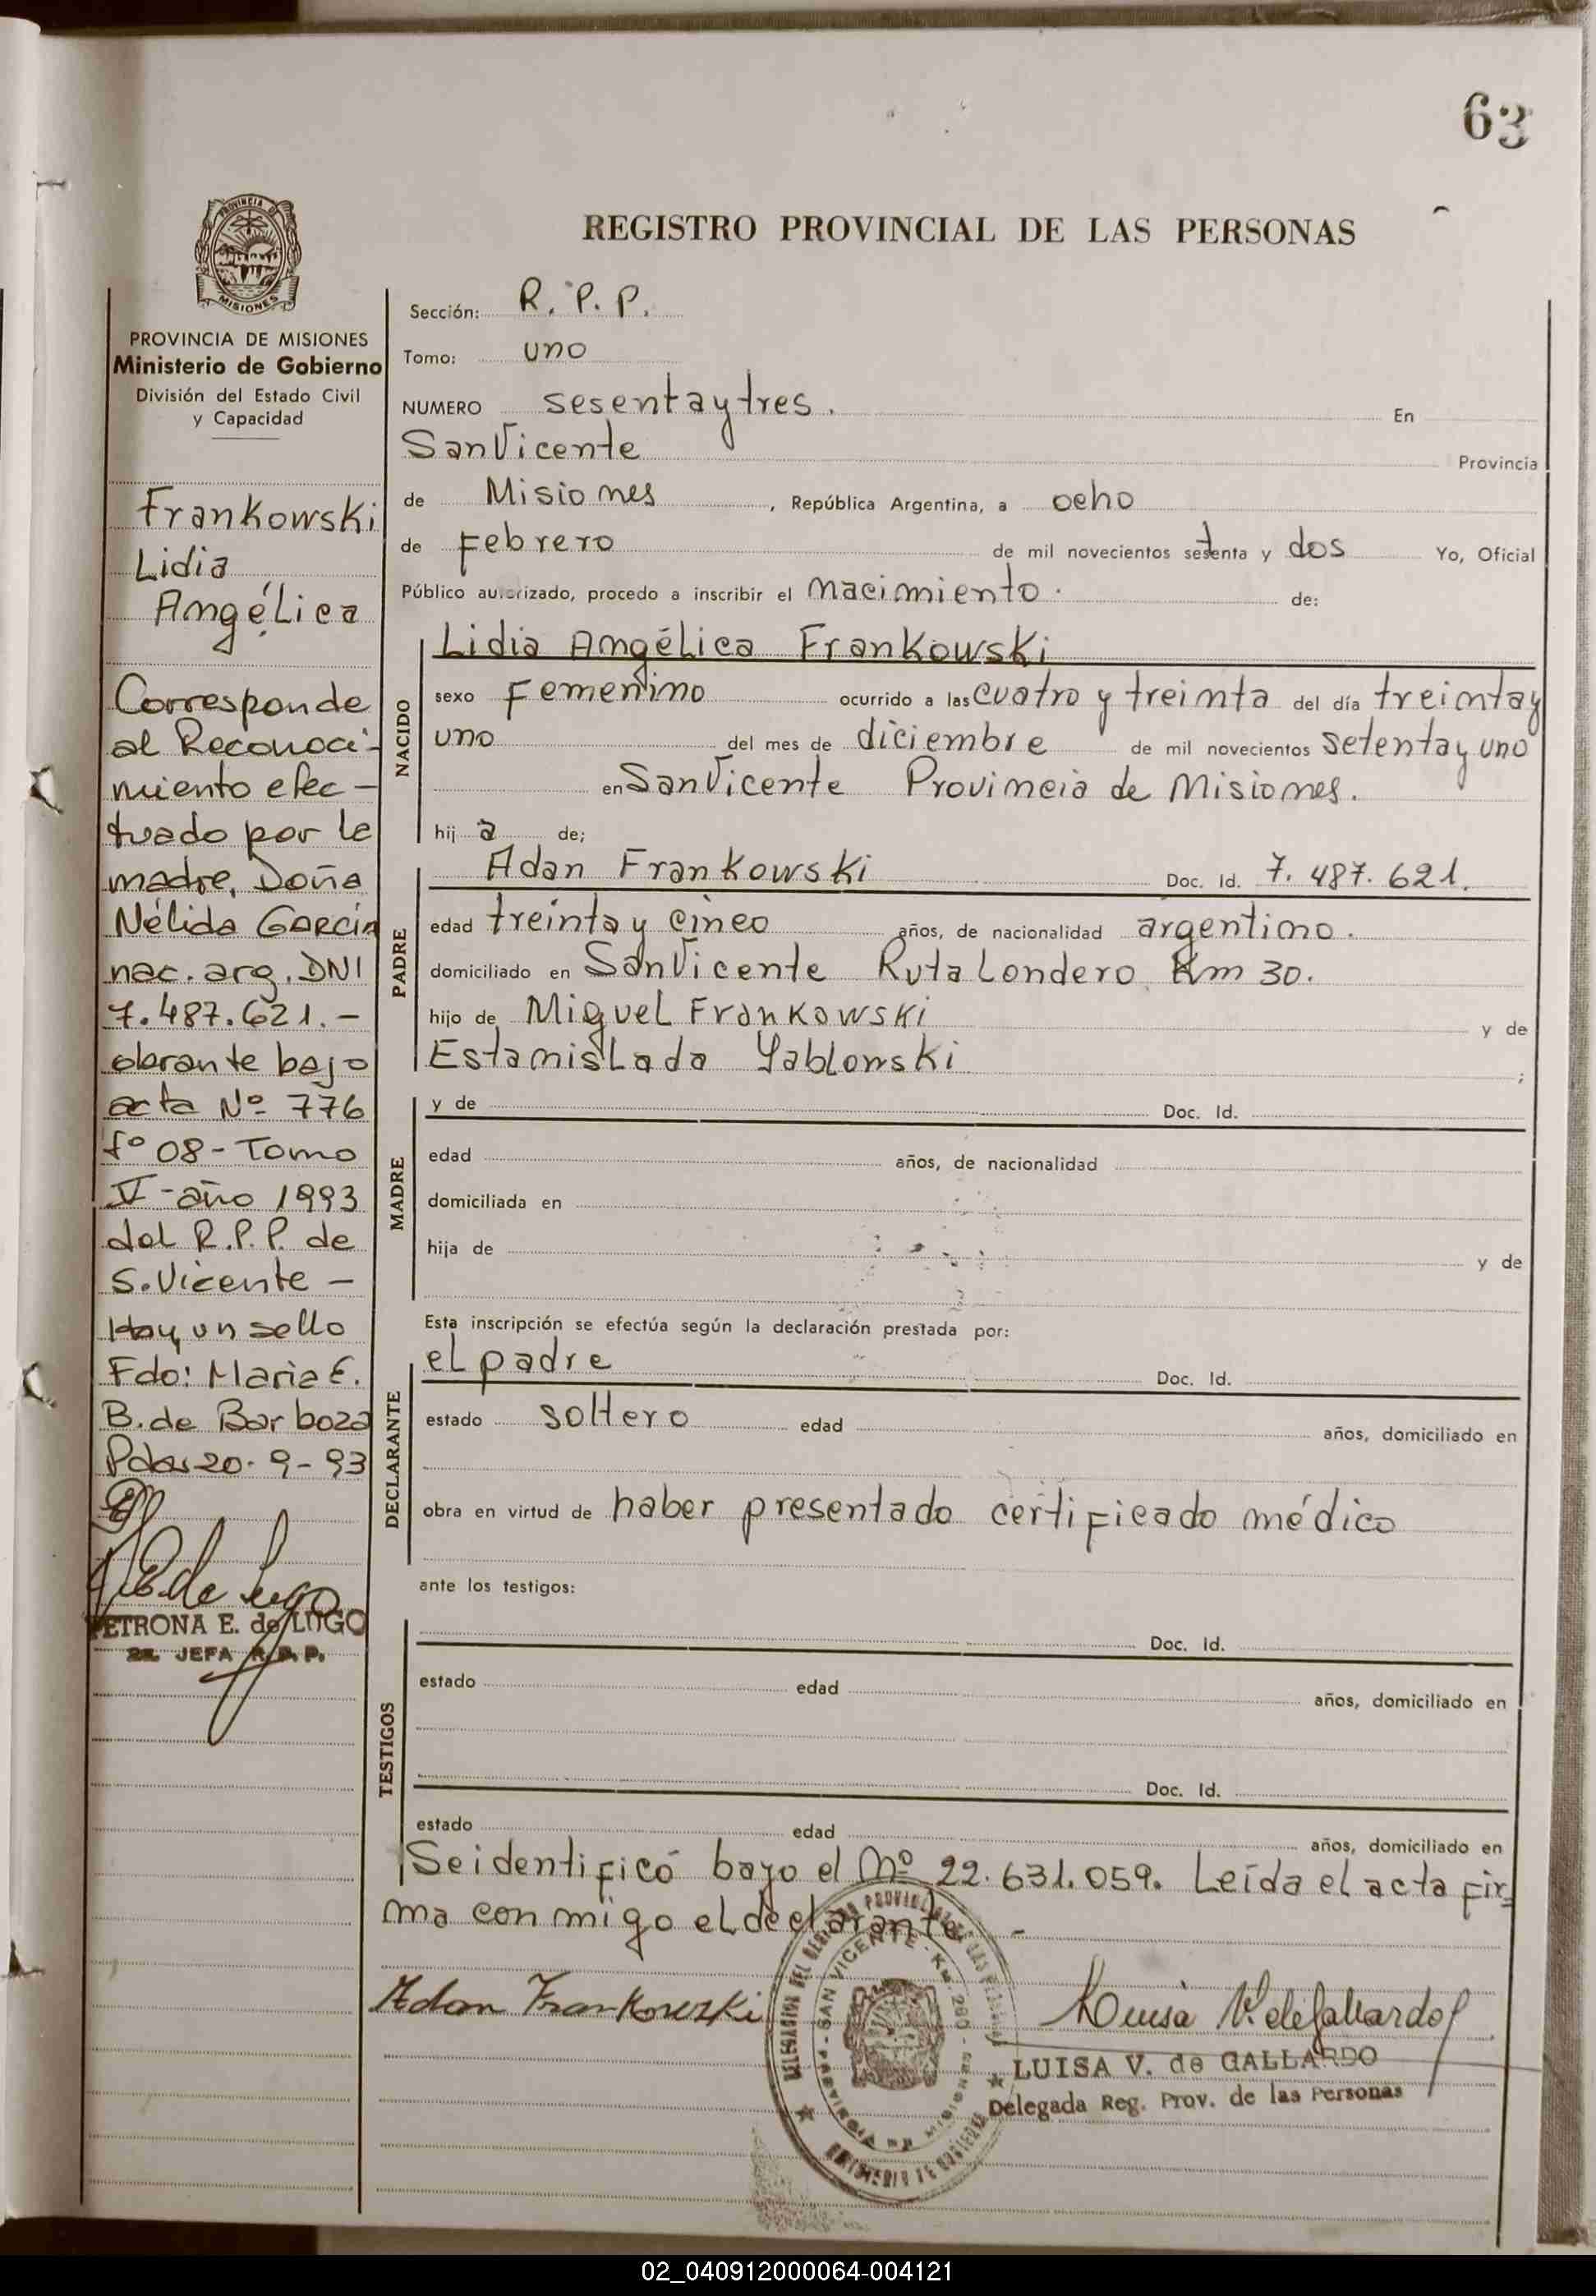 63
REGISTRO PROVINCIAL DE LAS PERSONAS
PROVINCIA DE
MISIONES
PROVINCIA DE MISIONES
Ministerio de Gobierno
División del Estado Civil
y Capacidad
Frankowski
Lidia
Angélica
Corresponde
al Reconoci-
miento efec-
tuado por la
madre, Doña
Nélida García
nac. arg. DNI
7.487.621.-
obrante bajo
acta Nº 776
fº 08 - Tomo
IV - año 1993
del R.P.P. de
S. Vicente -
Hay un sello
Fdo: Maria E.
B. de Barboza
Pdas 20-9-93
PETRONA E. de LUGO
JEFA R.P.P.
Sección: R.P.P.
Tomo: uno
NUMERO sesenta y tres. En
San Vicente Provincia
de Misiones, República Argentina, a ocho
de Febrero de mil novecientos setenta y dos Yo, Oficial
Público autorizado, procedo a inscribir el nacimiento. de:
NACIDO
Lidia Angélica Frankowski
sexo Femenino ocurrido a las cuatro y treinta del día treinta y
uno del mes de diciembre de mil novecientos setenta y uno
en San Vicente Provincia de Misiones.
hij a de;
PADRE
Adan Frankowski Doc. Id. 7.487.621.
edad treinta y cinco años, de nacionalidad argentino.
domiciliado en San Vicente Ruta Londero Km 30.
hijo de Miguel Frankowski y de
Estanislada Yablonski ;
MADRE
y de Doc. Id.
edad años, de nacionalidad
domiciliada en
hija de y de
Esta inscripción se efectúa según la declaración prestada por:
DECLARANTE
el padre Doc. Id.
estado soltero edad años, domiciliado en
obra en virtud de haber presentado certificado médico
ante los testigos:
TESTIGOS
Doc. Id.
estado edad años, domiciliado en
Doc. Id.
estado edad años, domiciliado en
Se identificó bajo el Nº 22.631.059. Leída el acta fir=
ma conmigo el declarante. -
Adan Frankowski
Luisa V. de Gallardo
LUISA V. de GALLARDO
Delegada Reg. Prov. de las Personas
02_040912000064-004121